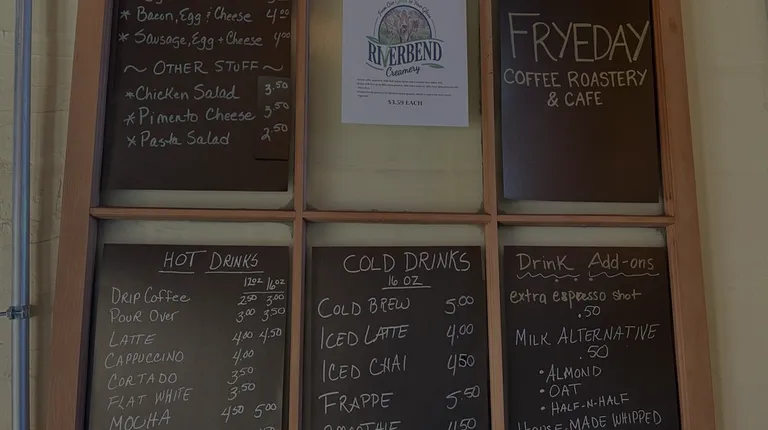 * Bacon, Egg & Cheese 4.00
* Sausage, Egg & Cheese 4.00
~ OTHER STUFF ~
* Chicken Salad 3.50
* Pimento Cheese 3.50
* Pasta Salad 2.50
RIVERBEND
Creamery
$3.59 EACH
FRYEDAY
COFFEE ROASTERY
& CAFE
HOT DRINKS
12oz 16oz
DRIP COFFEE 2.50 3.00
POUR OVER 3.00 3.50
LATTE 4.00 4.50
CAPPUCCINO 4.00
CORTADO 3.50
FLAT WHITE 3.50
MOCHA 4.50 5.00
COLD DRINKS
16 OZ
COLD BREW 5.00
ICED LATTE 4.00
ICED CHAI 4.50
FRAPPE 5.50
SMOOTHIE 4.50
Drink Add-ons
extra espresso shot
.50
MILK ALTERNATIVE
.50
• ALMOND
• OAT
• HALF-N-HALF
HOUSE-MADE WHIPPED